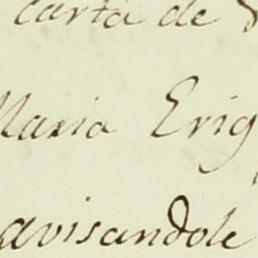 carta de
Maria Erig
avisandole